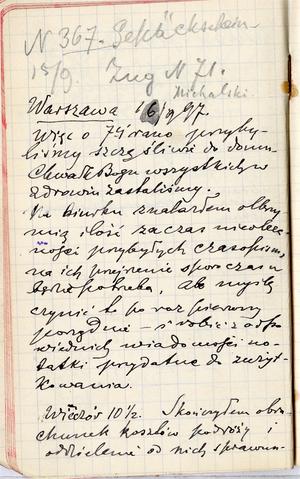 N 367. Gepäckschein
15/9. Zug N 71.
Michalski.
Warszawa 16/9 97.
Więc o 7 1/4 rano przyby-
liśmy szczęśliwie do domu
Chwała Bogu wszystkich w
zdrowiu zastaliśmy.
Na biurku znalazłem olbrzy-
mią ilość za czas nieobec-
ności przybyłych czasopism
na ich przejrzenie sporo czasu
będzie potrzeba, ale myślę
czynić to po raz pierwszy
porządnie – i robić z odpo-
wiednich wiadomości no-
tatki przydatne do zużyt-
kowania.
Wieczór 10 1/2. Skończyłem obra-
chunek kosztów podróży i
oddzielenie od nich sprawun-